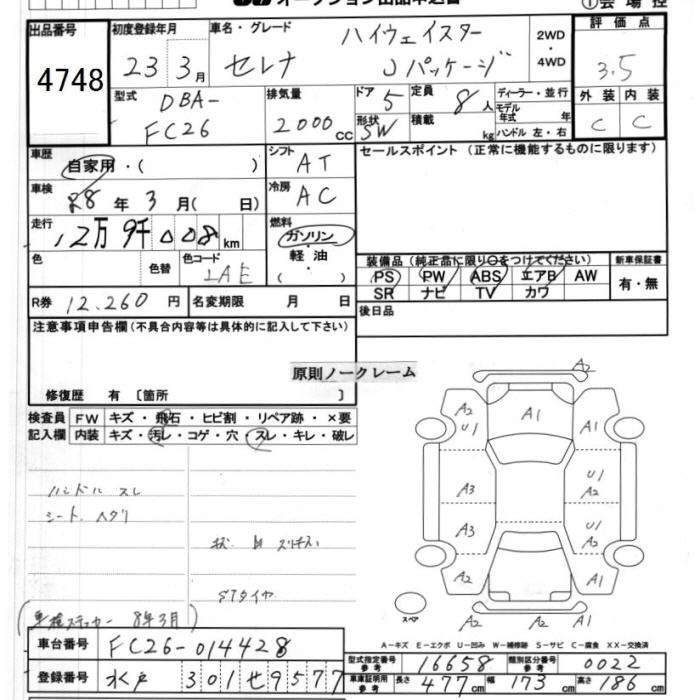 オークション出品申込書
①会場控
出品番号 初度登録年月 車名・グレード 評価点
4748
23年 3月 セレナ ハイウェイスター Jパッケージ 2WD・4WD 3.5
型式 DBA-FC26
排気量 2000cc
ドア 5 定員 8人
形状 SW 積載 kg
ディーラー・並行
モデル年式 年
ハンドル 左・右
外装 内装
C C
車歴 自家用・( )
シフト AT
セールスポイント (正常に機能するものに限ります)
車検 R8年 3月( 日)
冷房 AC
走行 12万9千008km
燃料 ガソリン・軽油 ( ・ )
色 色替 色コード LAE
装備品 (純正品に限り○をつけてください) 新車保証書
PS PW ABS エアB AW 有・無
SR ナビ TV カワ
R券 12,260円 名変期限 月 日
後日品
注意事項申告欄(不具合内容等は具体的に記入して下さい)
原則ノークレーム
修復歴 有 〔箇所 〕
検査員 FW キズ・飛石・ヒビ割・リペア跡・×要
記入欄 内装 キズ・汚レ・コゲ・穴・スレ・キレ・破レ
A2
A2 U1 A1 A1
A3 U1 A2
A3 U1 A2
A2 A2 A1
A2
スペア
ハンドル スレ
シート ヘタリ
STタイヤ
(車検ステッカー 8年3月)
A-キズ E-エクボ U-凹み W-補修跡 S-サビ C-腐食 XX-交換済
車台番号 FC26-014428
型式指定番号 参考 16658 類別区分番号 参考 0022
登録番号 水戸 301 せ 9577
車庫証明 参考 長さ 477cm 幅 173cm 高さ 186cm